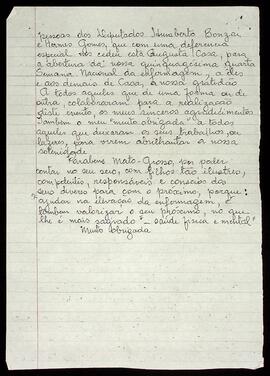 pessoas dos Deputados Humberto Bonzai
e Hermes Gomes, que com uma deferencia
especial nos cedeu esta Augusta Casa, para
a abertura da nossa quinquagésima quarta
Semana Nacional da enfermagem, a eles
e aos demais da Casa, a nossa gratidão
A todos aqueles que de uma forma ou de
outra, colaboraram para a realização
deste evento, os meus sinceros agradecimentos
Tambem o meu muito obrigada, a todos
aqueles que deixaram os seus trabalhos, ou
lazeres, para virem abrilhantar a nossa
solenidade.
Parabens Mato-Grosso, por poder
contar no seu seio, com filhos tão ilustres,
competentes, responsáveis e conscios dos
seus deveres para com o próximo, porque:
"ajudar na elevação da enfermagem, é
tambem valorizar o seu próximo, no que
lhe é mais sagrado - saúde fisica e mental"
Muito obrigada